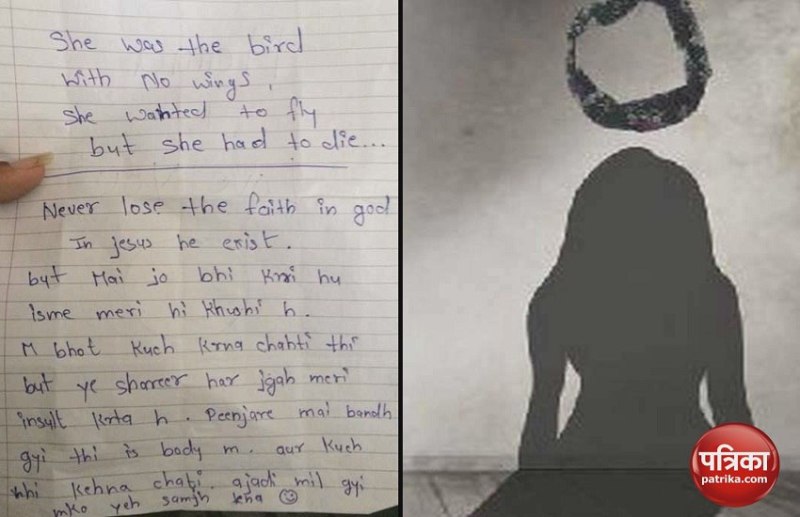 She was the bird
With No wings,
She wanted to fly
but she had to die...
Never lose the faith in god
In jesus he exist.
but Mai jo bhi krri hu
isme meri hi khushi h.
M bhot kuch krna chahti thi
but ye shareer har jgah meri
insult krta h. Peenjare mai bandh
gyi thi is body m. aur kuch
nhi kehna chati. ajadi mil gyi
mko yeh samjh lena
पत्रिका
patrika.com